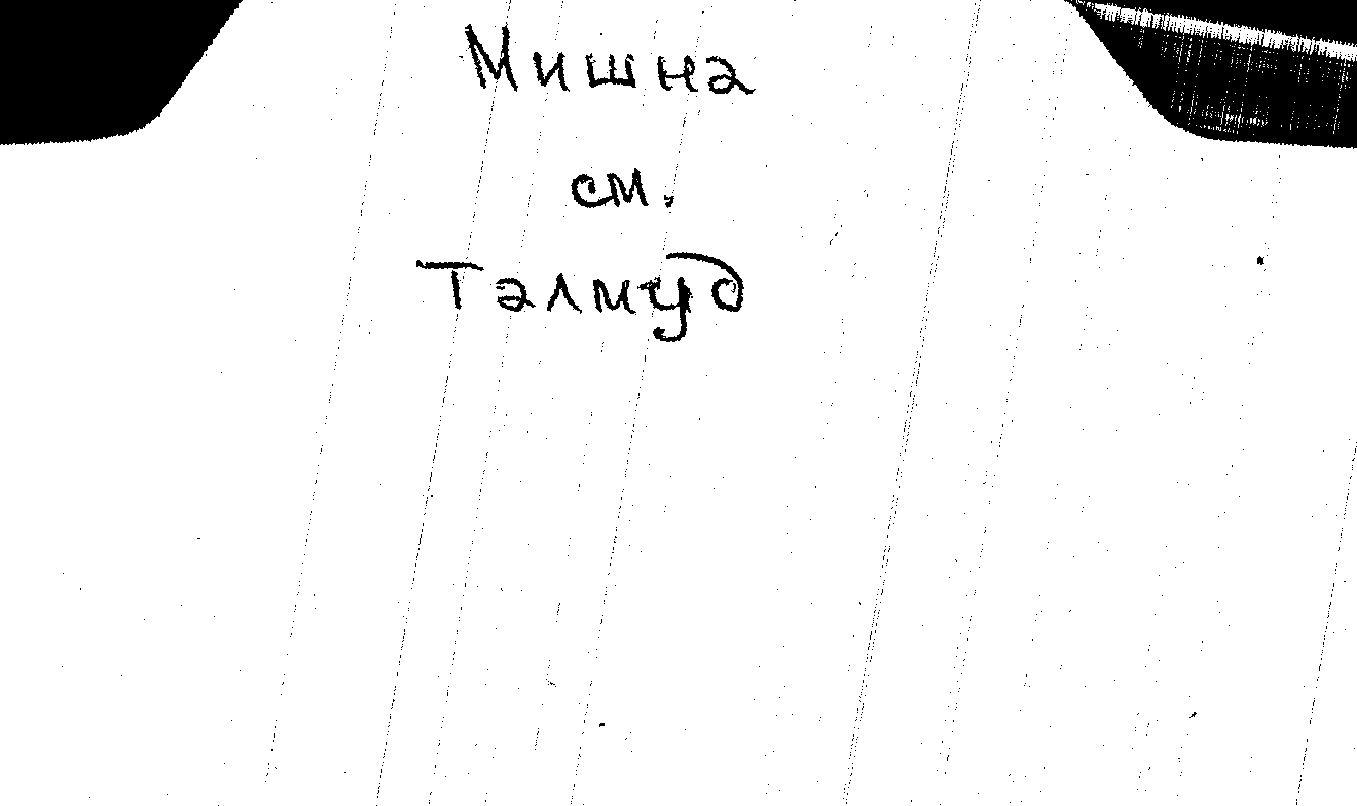 Мишна
см.
Талмуд